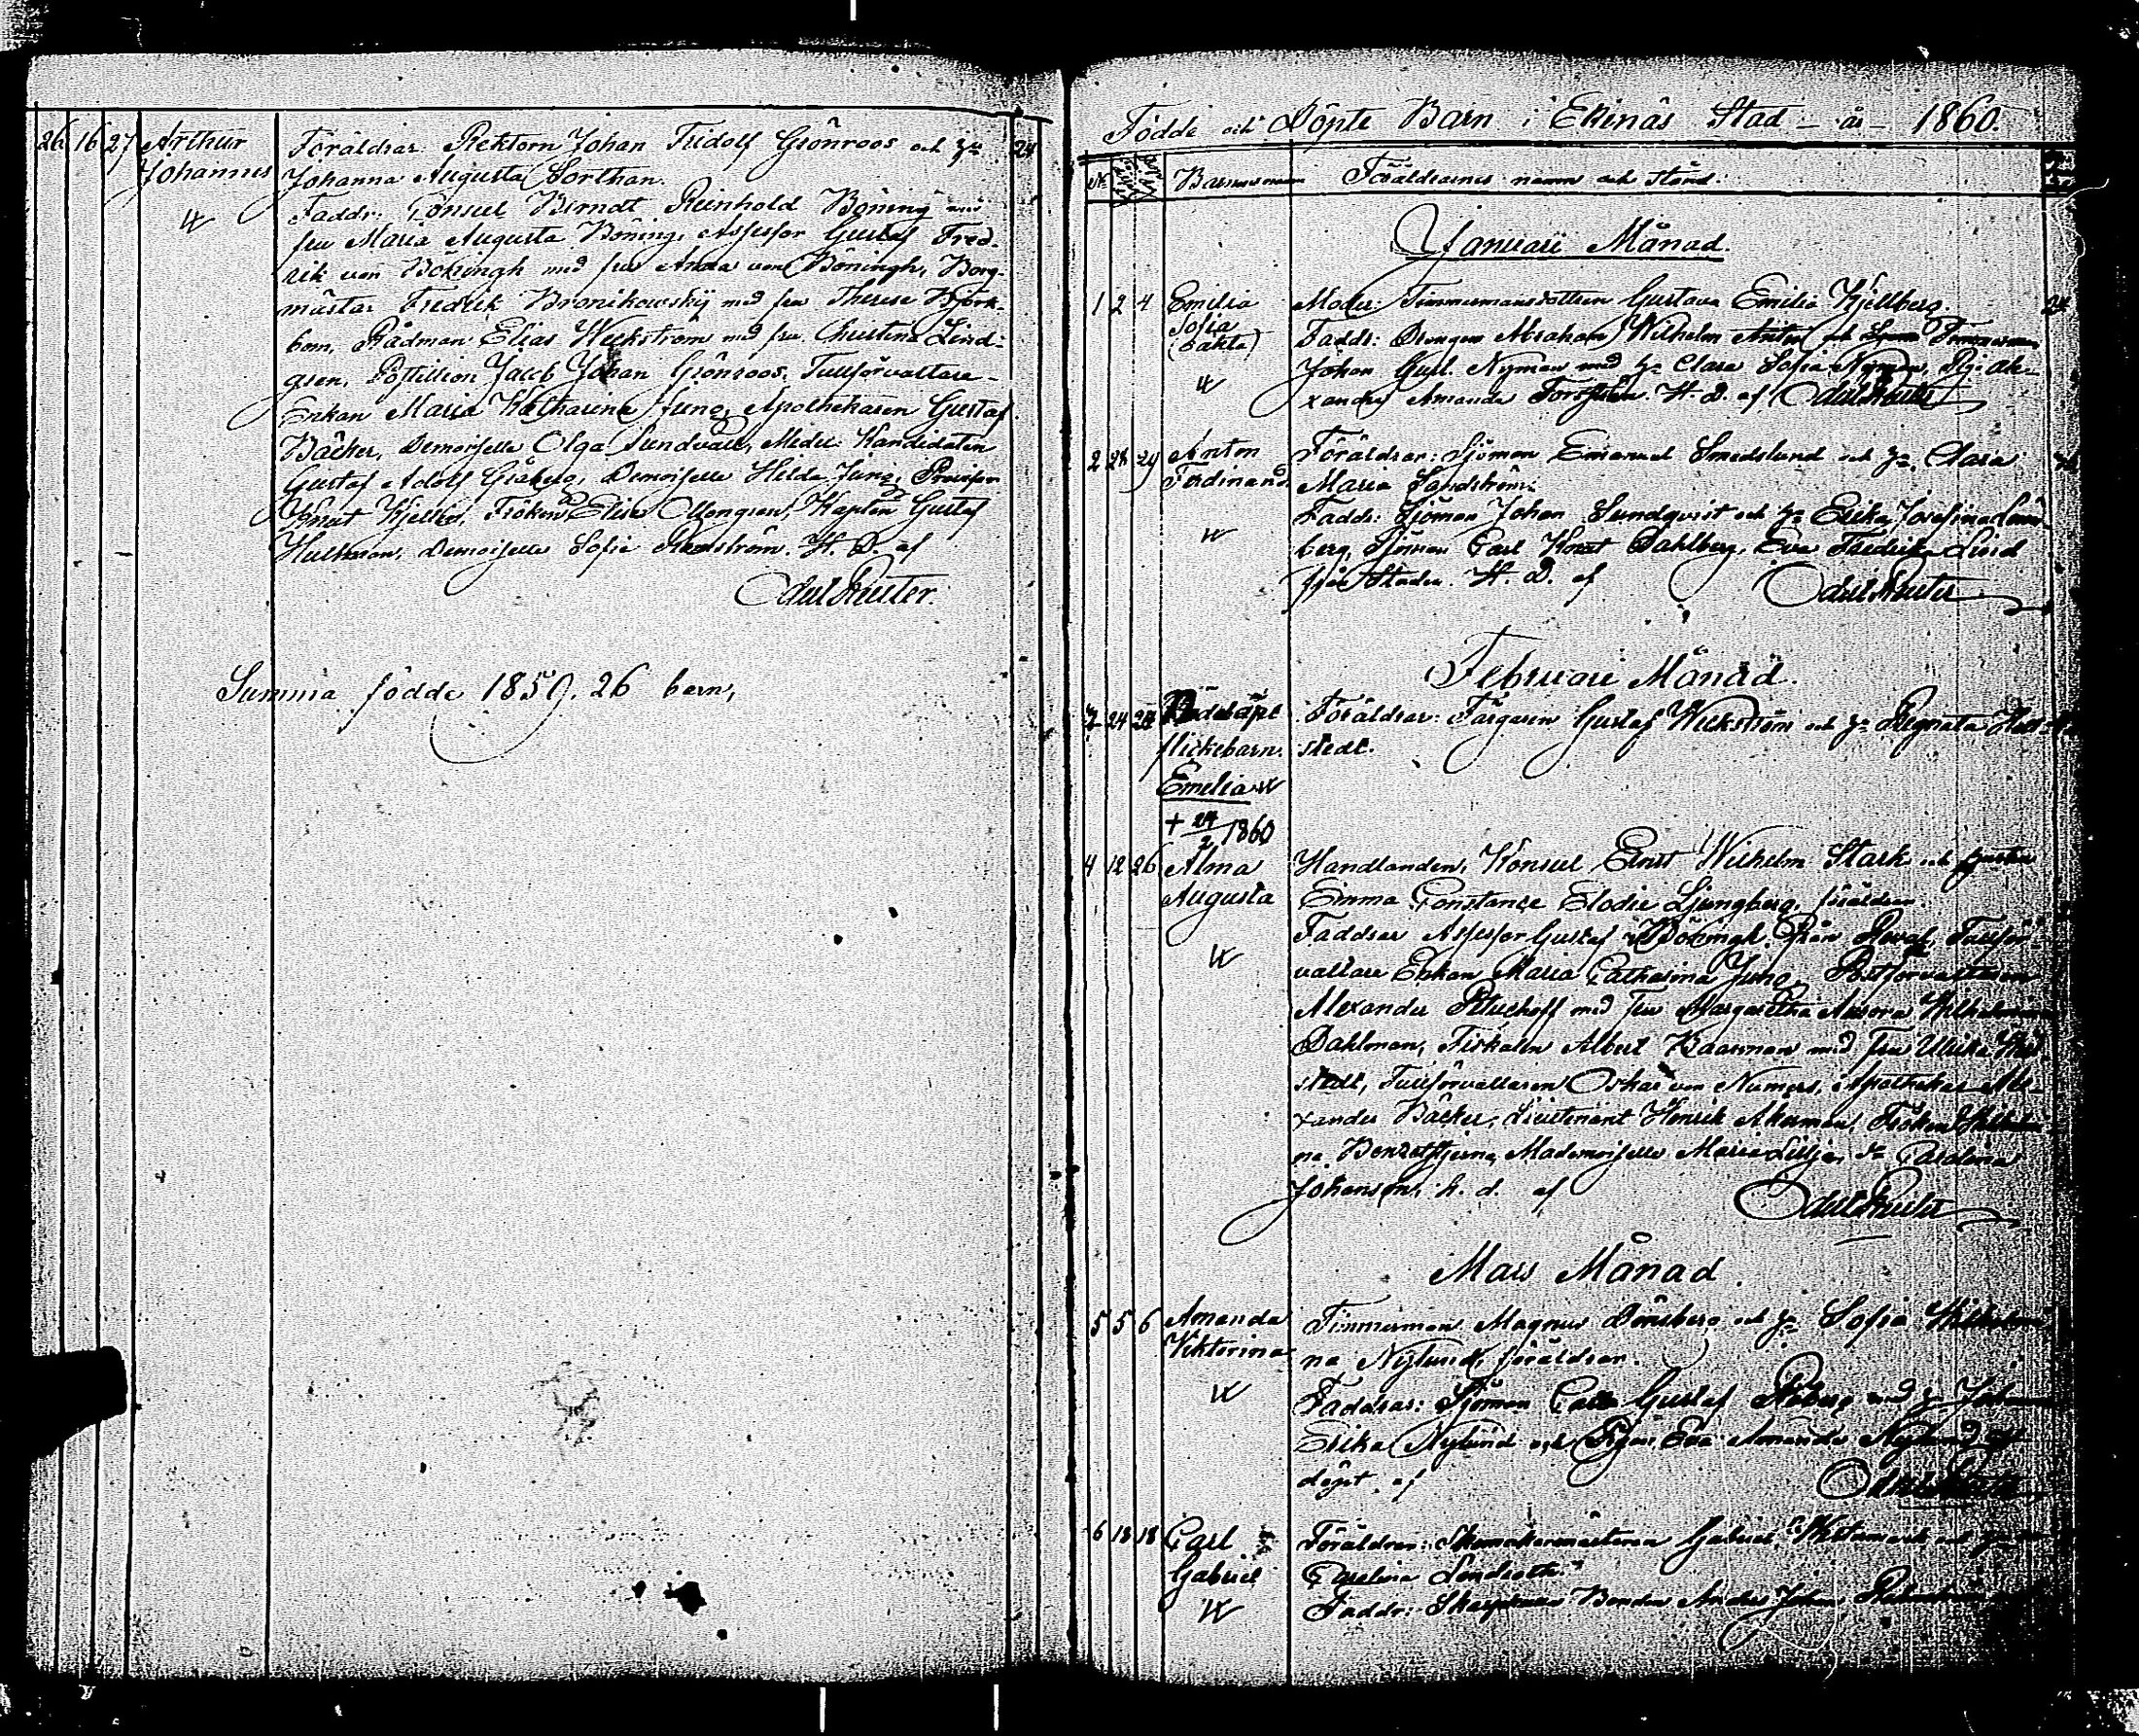 26 16 27 Arthur Johannes
Föräldrar: Rektorn Johan Fridolf Grönroos och h:u 24
Johanna Augusta Sorthan.
Faddr: Consul Berndt Reinhold Böning med
fru Maria Augusta Böning, Assessor Gustaf Fred-
rik von Böningh med fru Anna von Böningh, Borg-
mästar Fredrik Bronikowskij med fru Therese Björk-
bom, Rådman Elias Weckström med fru Christina Lind-
gren, Postillion Jacob Johan Grönroos, Tullförvaltare-
Enkan Maria Katharina Jung, Apothekaren Gustaf
Bäcker, Demoiselle Olga Sundvall, Medic: Kandidaten
Gustaf Adolf Gråberg, Demoiselle Hilda Jung, Provisor
Knut Kjellin, Fröken Elise Mongren, Kapten Gustaf
Hultman, Demoiselle Sofie H. D. af
Summa födde 1859. 26 barn,
Födde och Döpte Barn i Ekenäs Stad – år – 1860.
No Barnens namn Föräldrarnes namn och stånd.
Januari Månad.
1 2 4 Emilia Sofia (oäkta)
Moder: Timmermansdottren Gustava Emilia Kjellberg 24
Faddr: Drengen Abraham Wilhelm Antin och
Johan Gust. Nyman med h: Clara Sofia Nyman, Pig: Ale-
xandra Amanda H. D. af
2 28 29 Anton Ferdinand
Föräldrar: Sjöman Emanuel Smedslund och h: Clara
Maria Sandström.
Faddr: Sjöman Johan Sundqvist och h: Erika Josefina
berg, Sjöman Carl Knut Dahlberg, Eva Fredrika Lind
från Staden. H. D. af
Februari Månad.
3 24 24 Dödfödt flickebarn.
Emelia
+ 24/2 1860
Föräldrar: Färgaren Gustaf Weckström och h: Regnata
stedt.
4 12 26 Alma Augusta
Handlanden, Konsul Ernst Wilhelm Stark och hustru
Emma Constance Elodie Ljungberg, föräldrar.
Faddrar Assessor Gustaf v. Böningh från Tullför-
valtare Enkan Maria Catharina Jung, Postförvaltaren
Alexander med Fru Margaretha Aurora Wilhelmina
Dahlman, Fiskalen Albert Kaarman med Fru Ulrika
stedt, Tullförvaltaren Oskar von Numers, Apothekar Ale-
xander Bäcker, Lieutenant Henrik Åkerman, Fröken Wilhelmi-
na Mademoiselle Maria Lillja, d:o Carolina
Johanson, h. d. af
Mars Månad.
5 5 6 Amanda Viktorina
Timmerman Magnus Dönsberg och h: Sofia Wilhelmi-
na Nylund, föräldrar.
Faddrar: Sjöman Carl Gustaf med h:
Erika Nylund och Pigan Eva Amanda Nylund
döpt af
6 18 18 Carl Gabriel
Föräldrar: Skomakaremästaren Gabriel och
Carolina
Faddr: Bonden Anders Johan